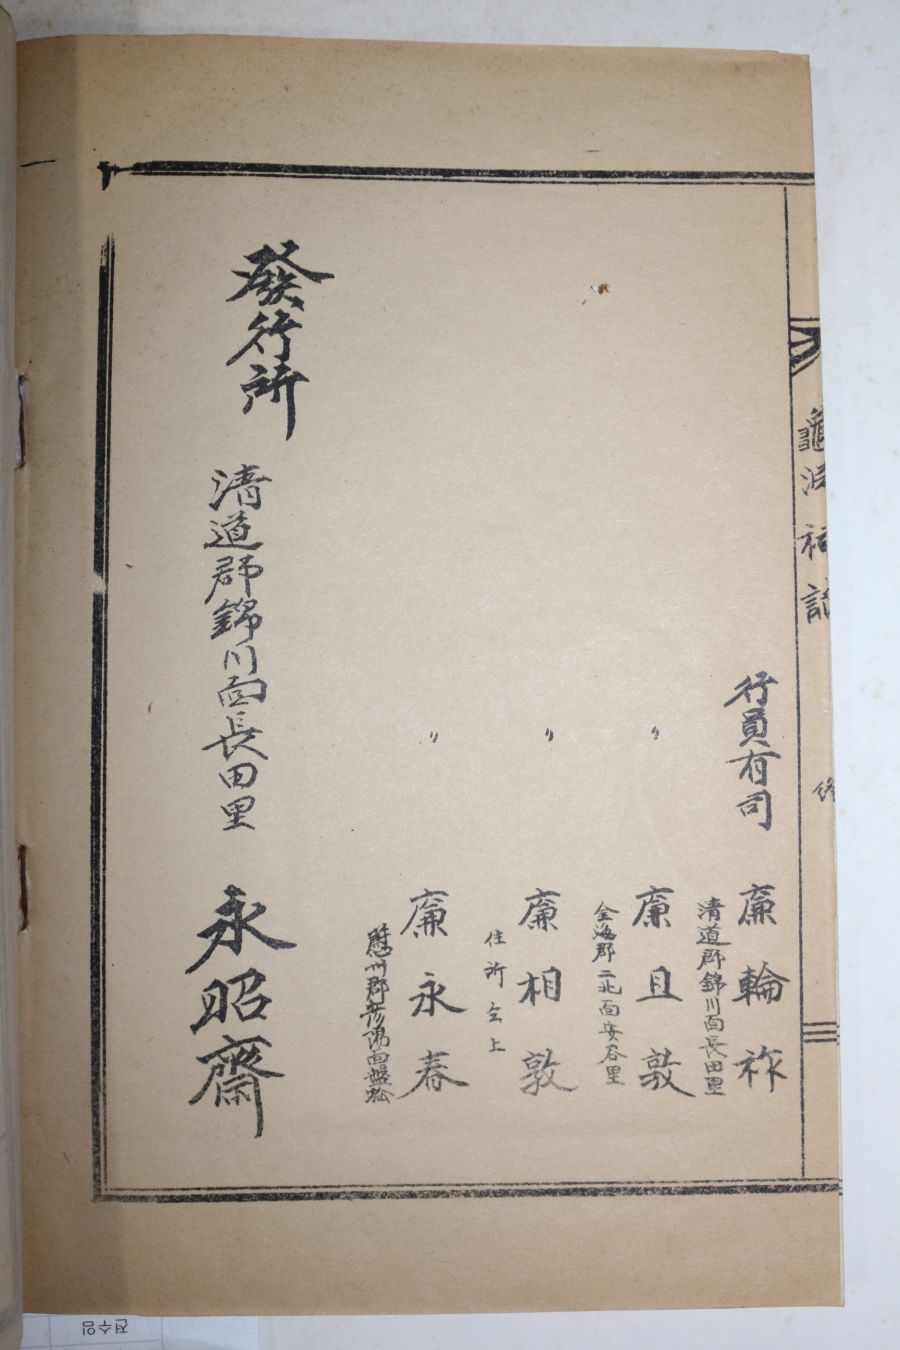 龜淵祠誌
終
行員有司
廉輪祚
清道郡錦川面長田里
〃
廉且敦
金海郡二北面安谷里
〃
廉相敦
住所仝上
〃
廉永春
蔚州郡彦陽面盤松
發行所
清道郡錦川面長田里
永昭齋
전수임